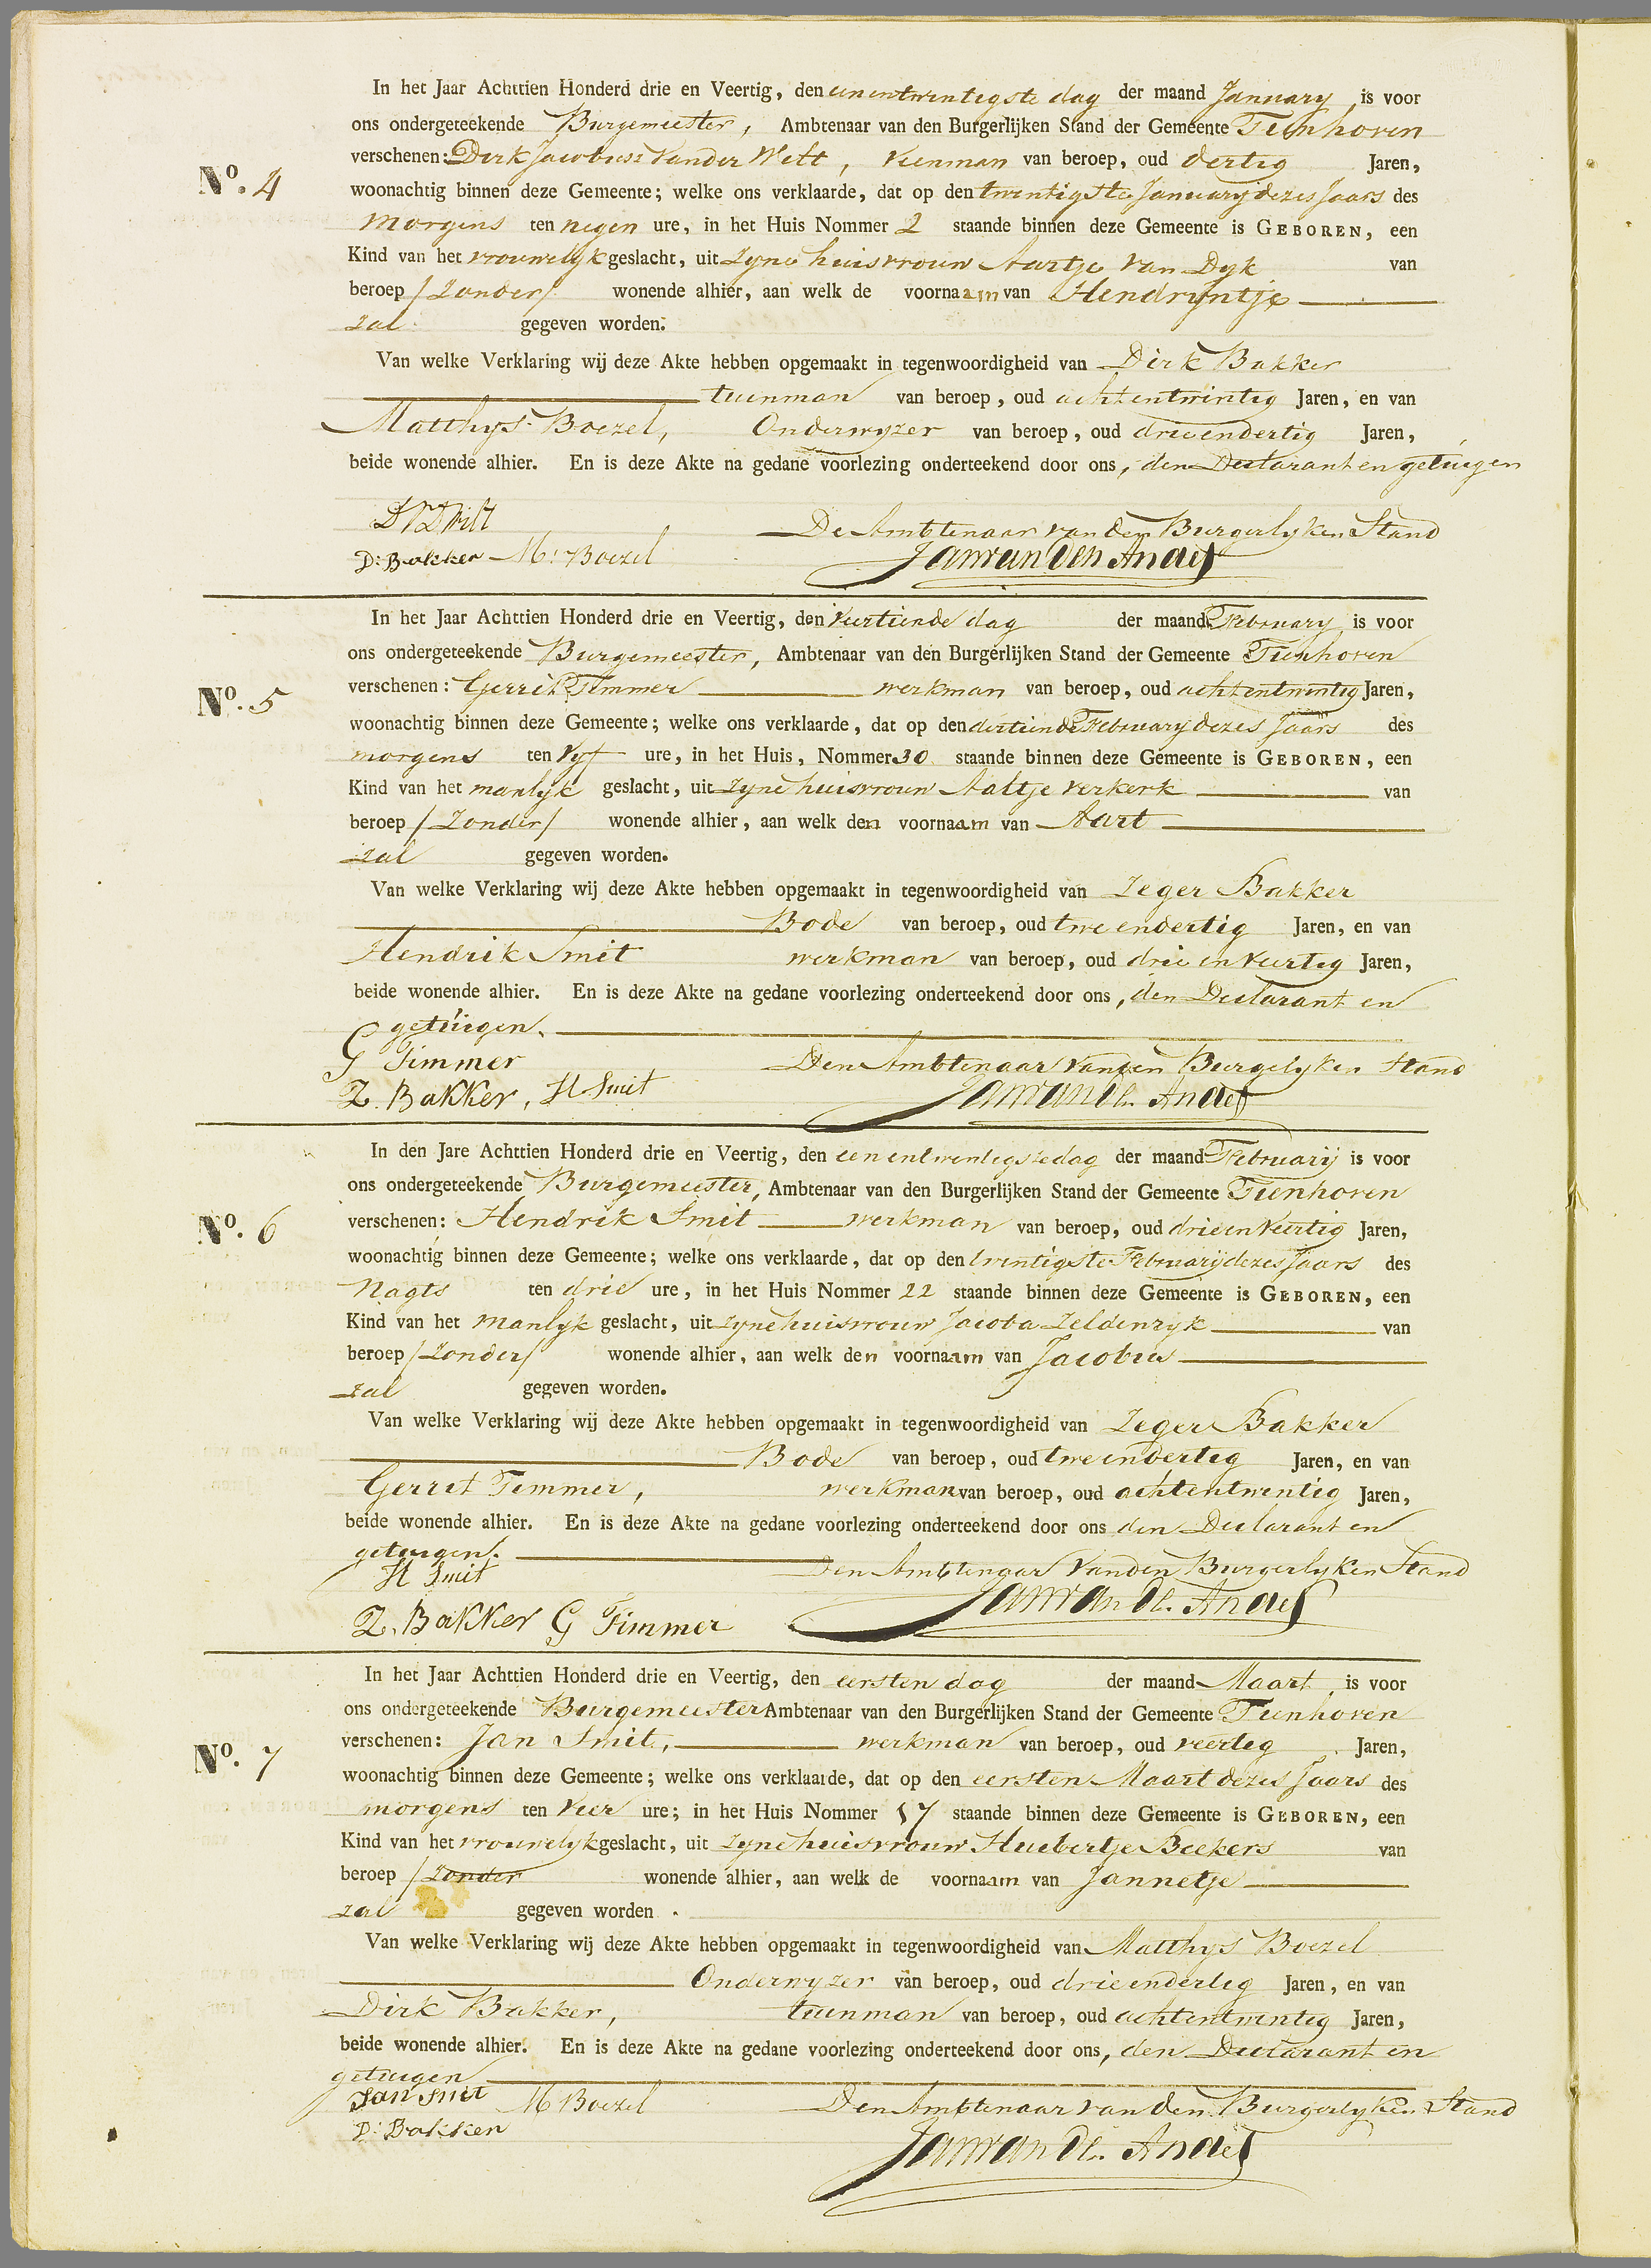 In het Jaar Achttien Honderd drie en Veertig, den eenentwintigste dag der maand January is voor
ons ondergeteekende Burgemeester, Ambtenaar van den Burgerlijken Stand der Gemeente Tienhoven
No. 4 verschenen: Dirk Jacobus van der Wilt, veenman van beroep, oud dertig Jaren,
woonachtig binnen deze Gemeente; welke ons verklaarde, dat op den twintigste January dezes Jaars des
morgens ten negen ure, in het Huis Nommer 2 staande binnen deze Gemeente is GEBOREN, een
Kind van het vrouwelyk geslacht, uit zyne huisvrouw Aartje van Dyk van
beroep /zonder/ wonende alhier, aan welk de voornaam van Hendrijntje
zal gegeven worden.
Van welke Verklaring wij deze Akte hebben opgemaakt in tegenwoordigheid van Dirk Bakker
tuinman van beroep, oud achtentwintig Jaren, en van
Matthys Boezel, Onderwyzer van beroep, oud drieendertig Jaren,
beide wonende alhier. En is deze Akte na gedane voorlezing onderteekend door ons, den Declarant en getuigen
DVDWilt De Ambtenaar van den Burgerlyken Stand
D: Bakker M: Boezel Jan van den Andel
In het Jaar Achttien Honderd drie en Veertig, den veertiende dag der maand February is voor
ons ondergeteekende Burgemeester, Ambtenaar van den Burgerlijken Stand der Gemeente Tienhoven
No. 5 verschenen: Gerrit Timmer werkman van beroep, oud achtentwintig Jaren,
woonachtig binnen deze Gemeente; welke ons verklaarde, dat op den dertiende February dezes Jaars des
morgens ten vyf ure, in het Huis, Nommer 30 staande binnen deze Gemeente is GEBOREN, een
Kind van het manlyk geslacht, uit zyne huisvrouw Aaltje Verkerk van
beroep /zonder/ wonende alhier, aan welk den voornaam van Aart
zal gegeven worden.
Van welke Verklaring wij deze Akte hebben opgemaakt in tegenwoordigheid van Zeger Bakker
Bode van beroep, oud twee endertig Jaren, en van
Hendrik Smit werkman van beroep, oud drie en veertig Jaren,
beide wonende alhier. En is deze Akte na gedane voorlezing onderteekend door ons, den Declarant en
getuigen.
G Timmer Den Ambtenaar van den Burgelyken Stand
Z. Bakker, H Smit Jan van dn. Andel
In den Jare Achttien Honderd drie en Veertig, den eenentwentigste dag der maand February is voor
ons ondergeteekende Burgemeester, Ambtenaar van den Burgerlijken Stand der Gemeente Tienhoven
No. 6 verschenen: Hendrik Smit werkman van beroep, oud drieenveertig Jaren,
woonachtig binnen deze Gemeente; welke ons verklaarde, dat op den twintigste February dezes Jaars des
Nagts ten drie ure, in het Huis Nommer 22 staande binnen deze Gemeente is GEBOREN, een
Kind van het manlyk geslacht, uit zyne huisvrouw Jacoba Zeldenryk van
beroep /zonder/ wonende alhier, aan welk den voornaam van Jacobus
zal gegeven worden.
Van welke Verklaring wij deze Akte hebben opgemaakt in tegenwoordigheid van Zeger Bakker
Bode van beroep, oud tweeendertig Jaren, en van
Gerret Timmer, werkman van beroep, oud achtentwentig Jaren,
beide wonende alhier. En is deze Akte na gedane voorlezing onderteekend door ons den Declarant en
getuigen.
H Smit Den Ambtenaar van den Burgerlyken Stand
Z. Bakker G Timmer Jan van dn. Andel
In het Jaar Achttien Honderd drie en Veertig, den eersten dag der maand Maart is voor
ons ondergeteekende Burgemeester Ambtenaar van den Burgerlijken Stand der Gemeente Tienhoven
No. 7 verschenen: Jan Smit, werkman van beroep, oud veertig Jaren,
woonachtig binnen deze Gemeente; welke ons verklaarde, dat op den eersten Maart dezes Jaars des
morgens ten vier ure; in het Huis Nommer 57 staande binnen deze Gemeente is GEBOREN, een
Kind van het vrouwelyk geslacht, uit zyne huisvrouw Huibertje Beekers van
beroep /zonder wonende alhier, aan welk de voornaam van Jannetje
zal gegeven worden.
Van welke Verklaring wij deze Akte hebben opgemaakt in tegenwoordigheid van Matthys Boezel
Onderwyzer van beroep, oud drieendertig Jaren, en van
Dirk Bakker, tuinman van beroep, oud achtentwentig Jaren,
beide wonende alhier. En is deze Akte na gedane voorlezing onderteekend door ons, den Declarant en
getuigen
Jan Smit M Boezel Den Ambtenaar van den Burgerlyken Stand
D: Bakker Jan van dn. Andel